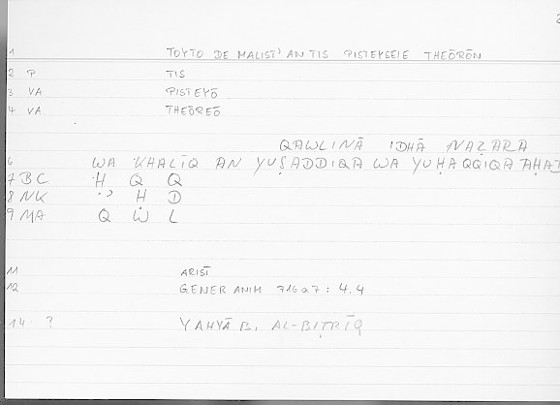 1 TOYTO DE MALIST' AN TIS PISTEYSEIE THEŌRŌN
2 P TIS
3 VA PISTEYŌ
4 VA THEŌREŌ
QAWLINĀ IDHĀ NAẒARA
6 WA KHALĪQ AN YUṢADDIQA WA YUḤAQQIQA AḤAD
7 BC Ḥ Q Q
8 NK ʾ Ḥ D
9 MA Q W L
11 ARIST
12 GENER ANIM 716a7: 4.4
14 ? YAḤYĀ B. AL-BIṬRĪQ